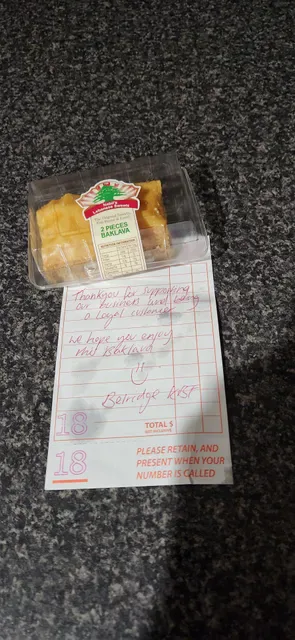 Lebanese Sweets
2 PIECES
BAKLAVA
Thankyou for supporting
our business and being
a Loyal customer
we hope you enjoy
this Baklava
18
TOTAL $
18
PLEASE RETAIN, AND
PRESENT WHEN YOUR
NUMBER IS CALLED